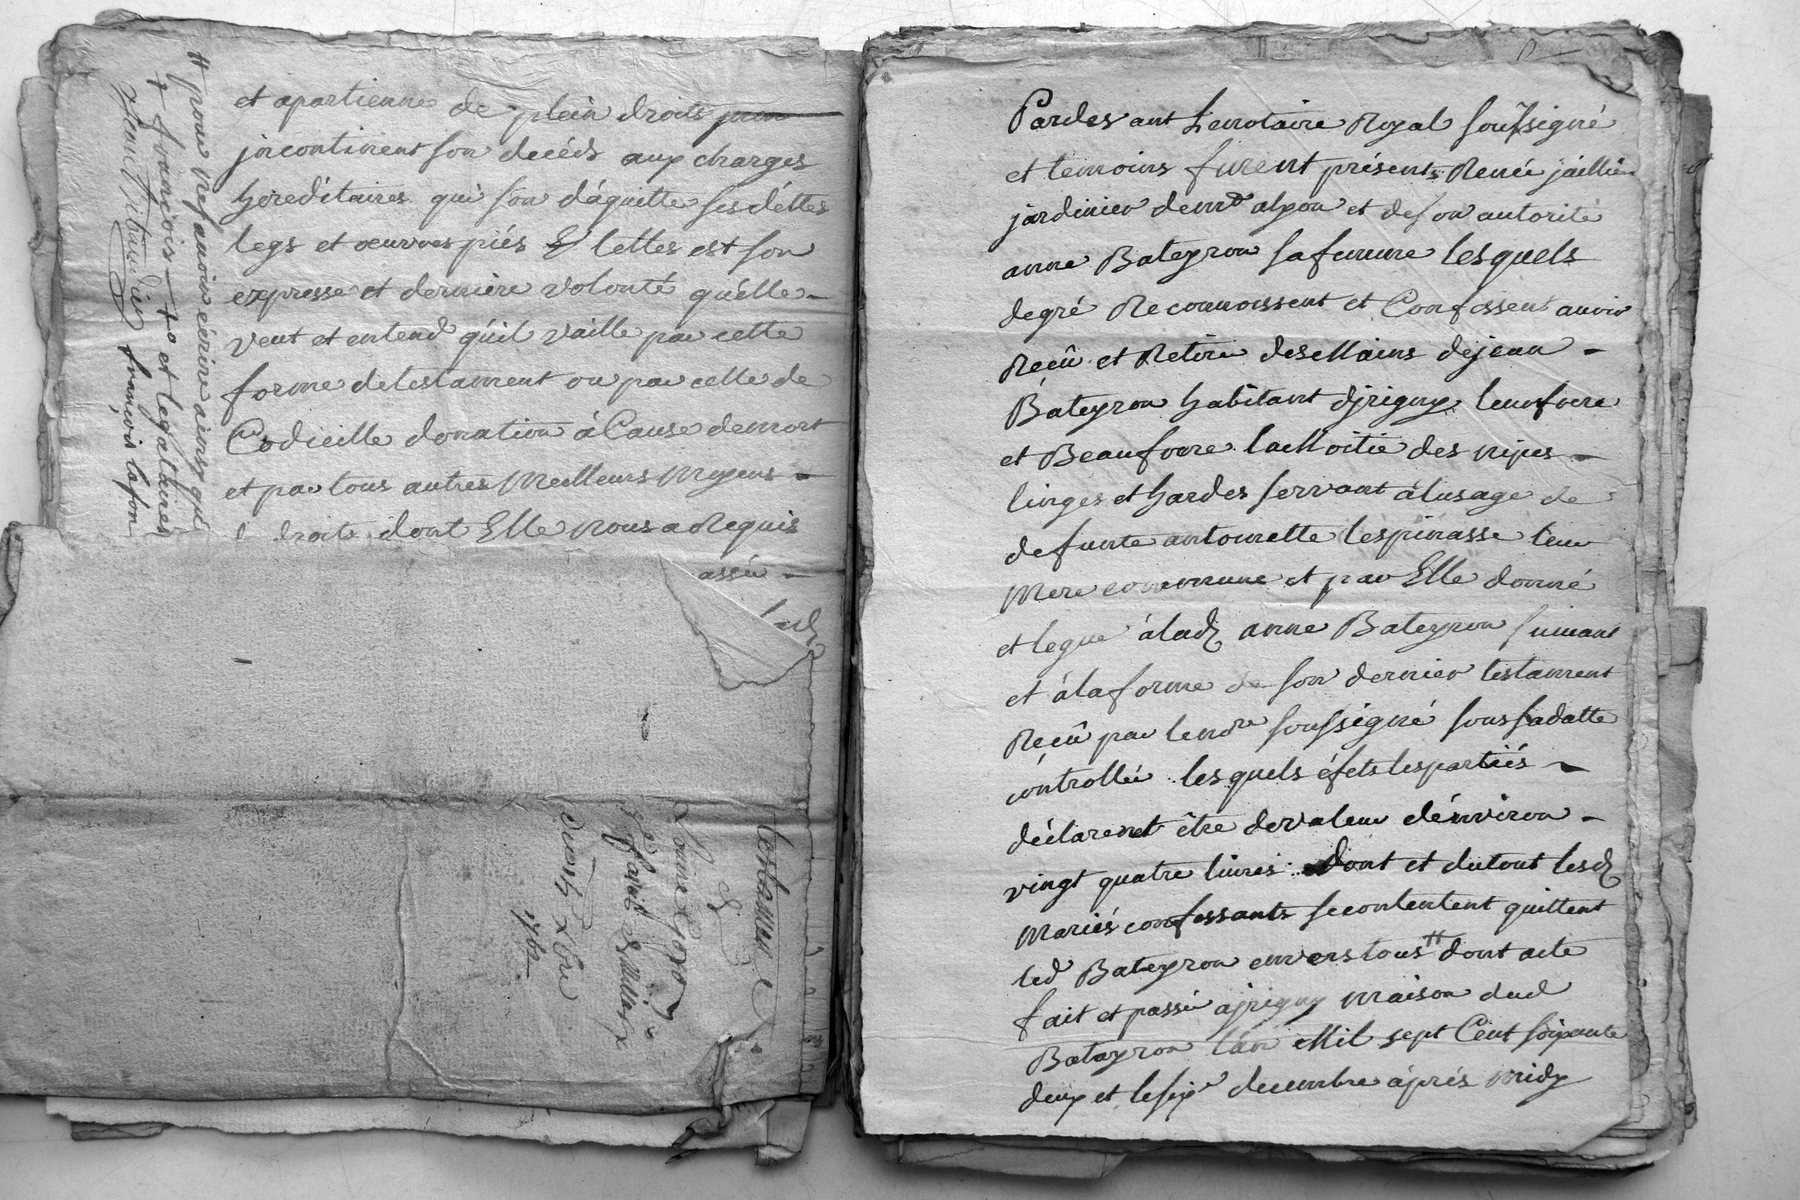 et apartienne de plein droits
jncontinent son decéds aux charges
héréditaires qui son d'aquitter ses déttes
legs et oeuvres piés & telles est son
expresse et derniere volonté qu'elle
veut et entend qu'il vaille par cette
forme de testament ou par celle de
Codicille donation à Cause de mort
et par tous autres Meilleurs Moyens
droits dont Elle nous a Requis
assée
lad
# pour ne sçavoir écrire ainsy que
+ françois + et legataires
françois lafon
testament
de
1762
Pardevant Lenotaire Royal soussigné
et temoins furent présents Renée jaillier
jardinier de md alyon et deson autorité
anne Bateyron safemme lesquels
degré Reconnoissent et Confessent avoir
Reçû et Retiré desMains dejean
Bateyron habitant djrigny leur frere
et Beaufrere laMoitié des nipes
linges et hardes servant àlusage de
defunte antoinette lespinasse leur
Mere commune et par Elle donné
et legué àlad anne Bateyron suivant
et àlaforme de son dernier testament
Reçû par lenore soussigné sous sadatte
côntrollé lesquels éfets lesparties
déclarent être devaleur d'énviron
vingt quatre livres dont et dutout lesd
Mariés confessants secontentent quittent
led Bateyron envers tous # dont acte
fait et passé àjrigny Maison dud
Bateyron l'an Mil sept Cent soixante
deux et lesix decembre aprés Midy